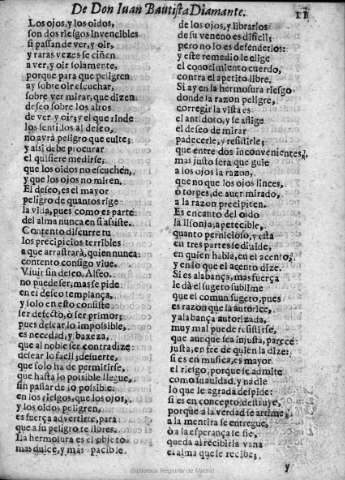 De Don Iuan Bautista Diamante.
11
Los ojos, y los oìdos,
son dos riesgos invencibles
si passan de ver, y oir,
y raras vezes se ciñen
a ver, y oir solamente,
porque para que peligren
ay sobre oir escuchar,
sobre ver mirar, que dizen
deseo sobre los altos
de ver y oir; y el que rinde
los sentidos al deseo,
no avrà peligro que evite;
y assi debe procurar
el quisiere medirse,
que los oidos no escuchen,
y que los ojos no miren.
El deseo, es el mayor
peligro de quantos rige
la vida, pues como es parte
del alma nunca en si assiste.
Contento discurre tu
los precipicios terribles
a que arrastrarà, quien nunca
contento consigo vive.
Vivir sin deseo, Alfeo,
no puede ser, mas se pide
en el deseo templança,
y solo en esto consiste
ser defecto, ò ser primor;
pues desear lo impossible,
es necedad, y baxeza,
que al noble ser contradize
desear lo facil; desuerte,
que solo ha de permitirse,
que hasta lo possible llegue,
sin passar de lo possible.
en los riesgos, que los ojos,
y los oidos peligren,
es fuerça advertirte, para
que a lu peligro te libres.
La hermosura es el objeto
mas dulce, y mas pacible
de los ojos, y librarlos
de su veneno es dificil;
pero no lo es defenderlos:
y este remedio le elige
el conocimiento cuerdo,
contra el apetito libre.
Si ay en la hermosura riesgo
donde la razon peligre,
corregir la vista es
el antidoto, y se aflige
el deseo de mirar
padecerle, y resistirle;
que entre dos inconvenientes,
mas justo serà que guie
a los ojos la razon,
que no que los ojos linces,
ò torpes, de aver mirado,
a la razon precipiten.
Es encanto del oìdo
la lisonja, apetecible,
quanto pernicioso, y esta
en tres partes se divide,
en quien habla, en el acento,
y en lo que el acento dize.
Si es alabança, mas fuerça
le dà el sugeto sublime
que el comun sugeto, pues
es razon que la autorice,
y alabança autorizada,
muy mal puede resistirse,
que aunque sea injusta, parece
justa, en fee de quien la dize:
si es en musica, es mayor
el riesgo, porque se admite
como suavidad, y nadie
lo que le agrada despide:
si es en concepto, destruye,
porque a la verdad se arrime;
a la mentira se entregue,
ò a la esperança se fie,
queda al recibirla vana
el alma que le recibe;
y
Biblioteca Regional de Madrid